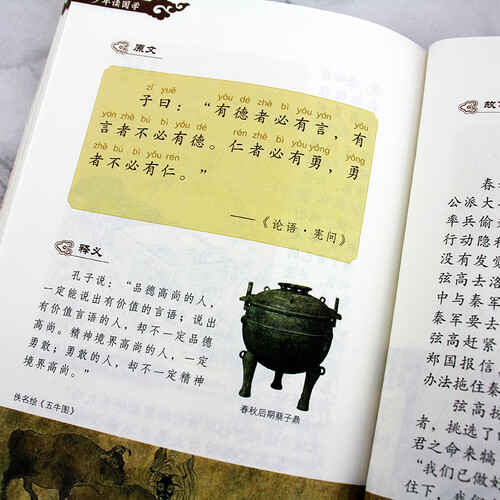 少年读国学
原文
zǐ yuē yǒu dé zhě bì yǒu yán yǒu
子曰：“有德者必有言，有
yán zhě bù bì yǒu dé rén zhě bì yǒu yǒng yǒng
言者不必有德。仁者必有勇，勇
zhě bù bì yǒu rén
者不必有仁。”
——《论语·宪问》
释义
孔子说：“品德高尚的人，
一定能说出有价值的言语；说出
有价值言语的人，却不一定品德
高尚。精神境界高尚的人，一定
勇敢；勇敢的人，却不一定精神
境界高尚。”
春秋后期蔡子鼎
佚名绘《五牛图》
故
春
公派大
率兵偷
行动隐
没有发觉
弦高去洛
中与秦军
秦军要去
弦高赶紧
郑国报信
办法拖住秦
弦高扮
者，挑选了
君之命来犒
“我们已做好
住下